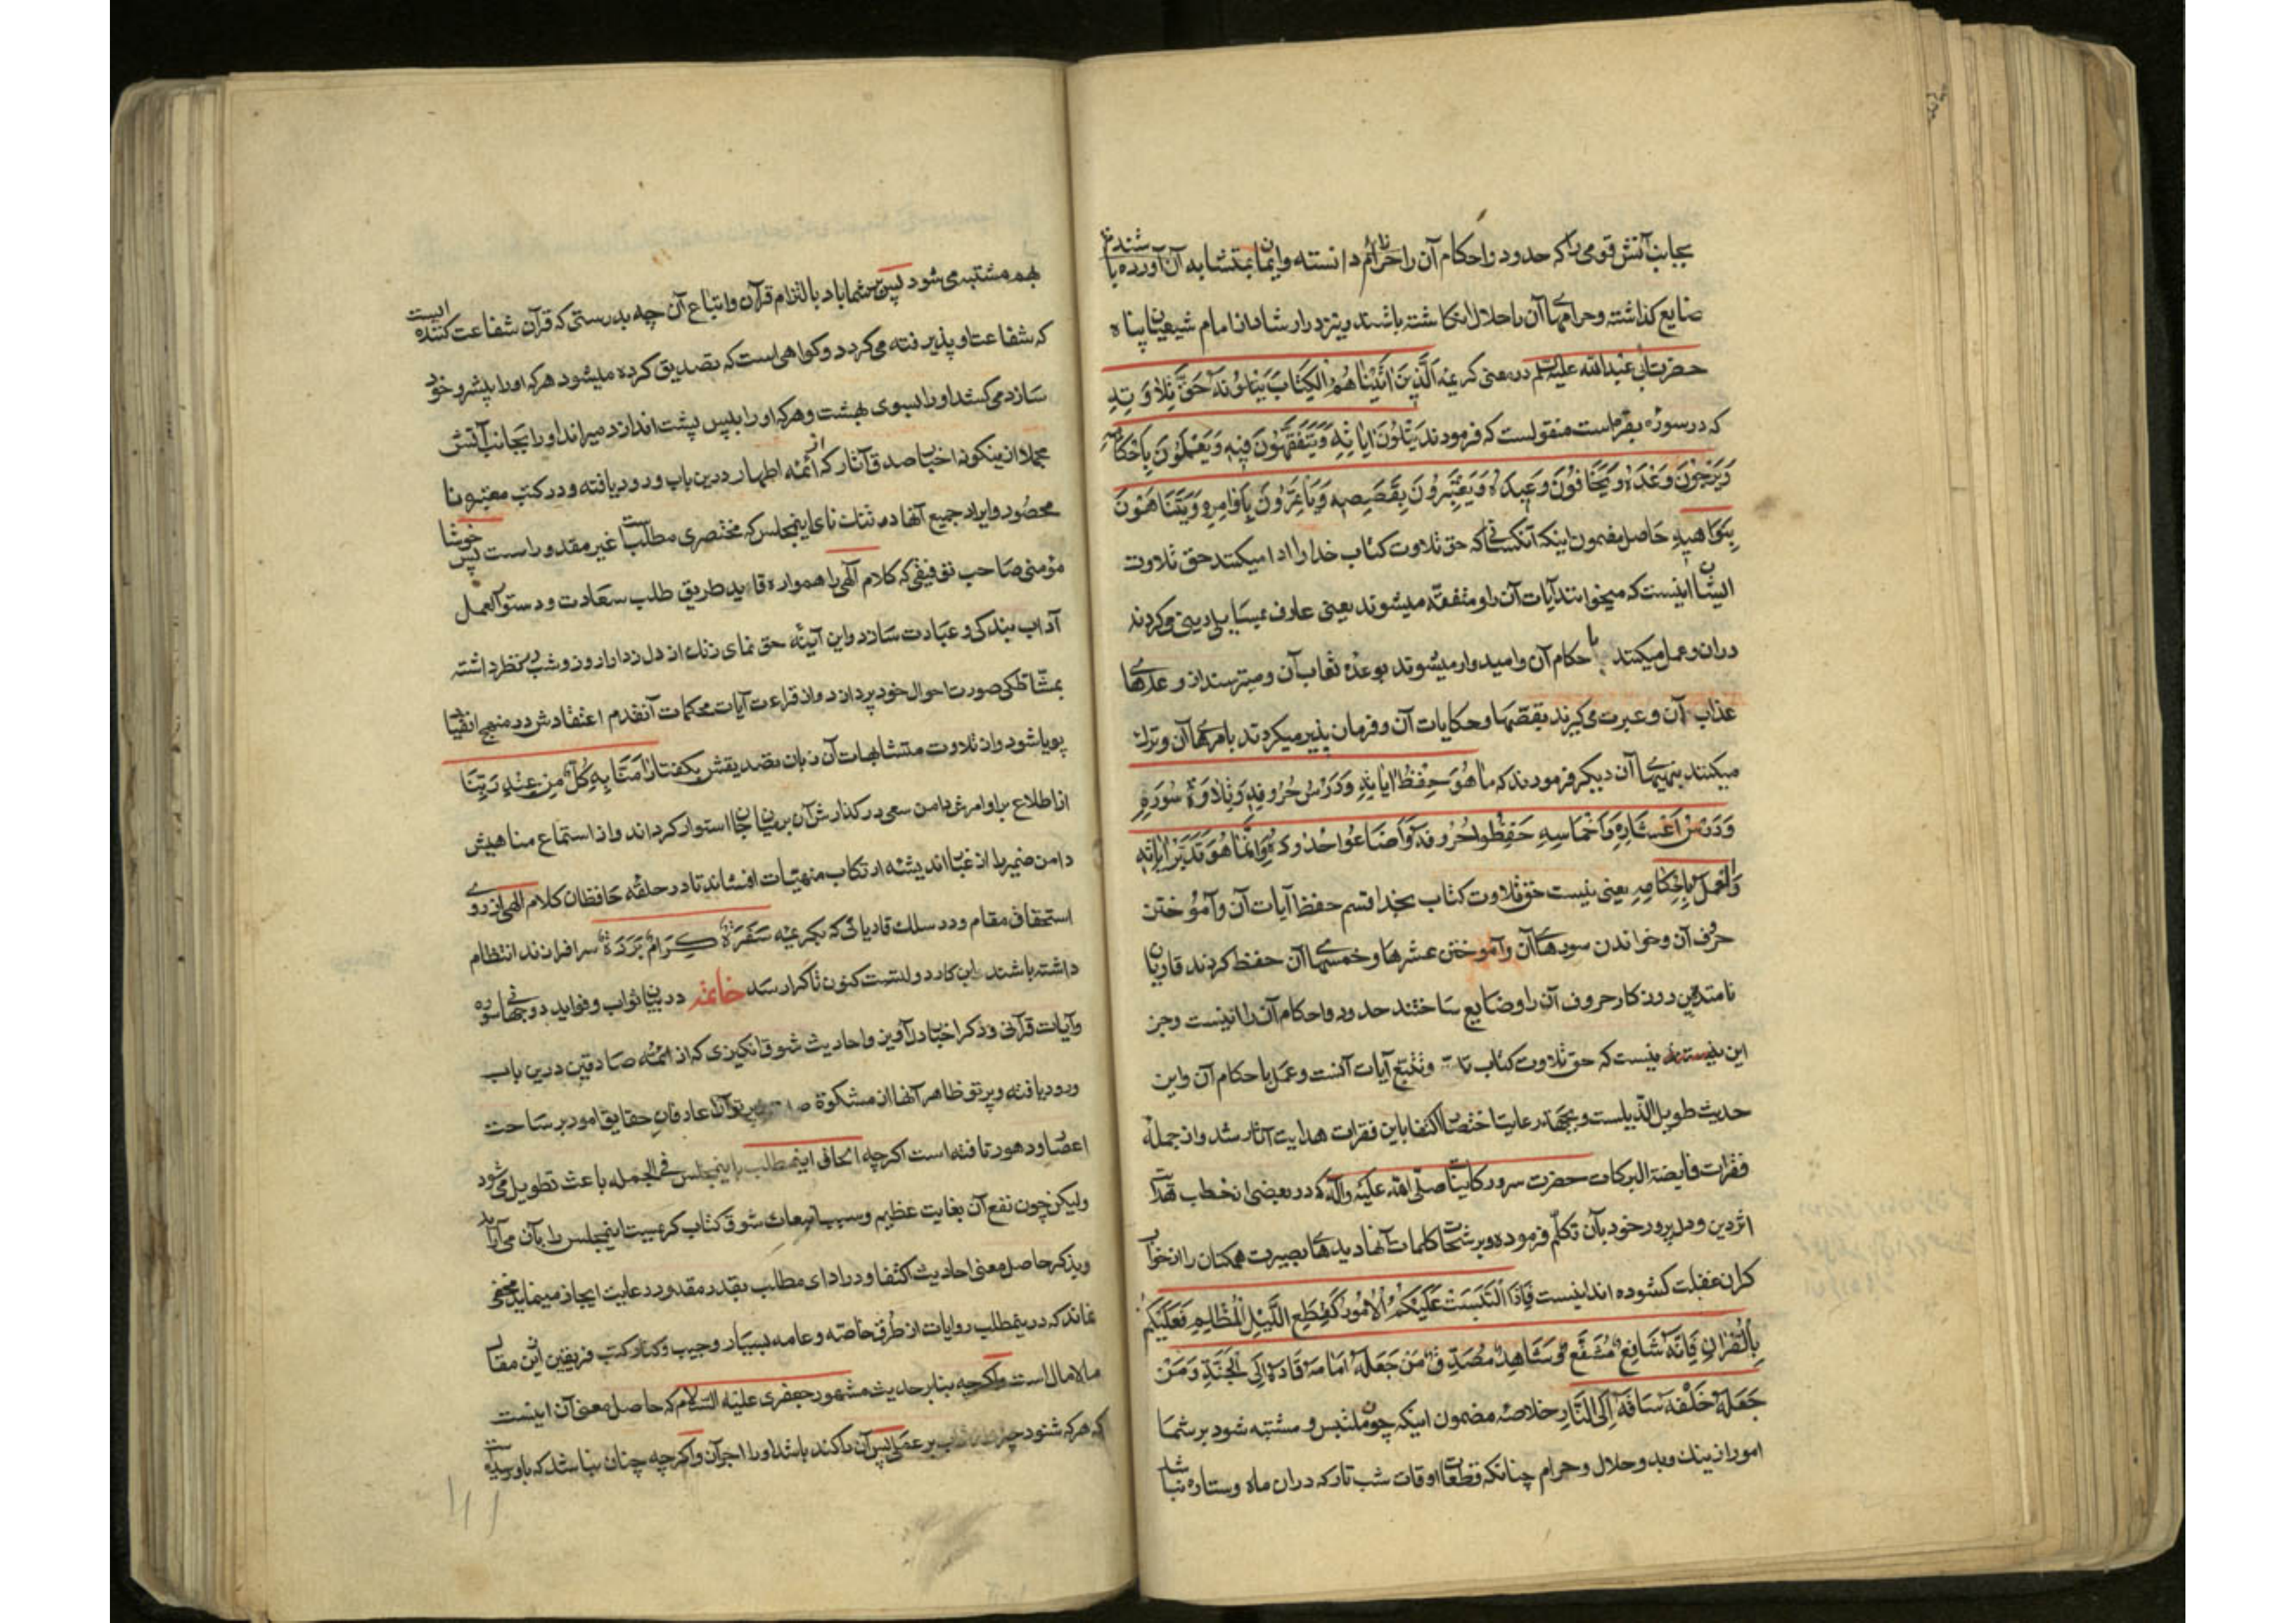 بجانب آتش قومی را که حدود و احکام آن را دانسته و ایمان بمتشابه آن آورده باشند
ضایع کذاشته و حرامهای آن را حلال باشند و نیز در ارشاد از امام شیعیان پناه
حضرت ابی عبدالله علیه السلم در معنی کریمه اَلَّذینَ اٰتَیْنٰاهُمُ الْکِتٰابَ یَتْلُونَهُ حَقَّ تِلاٰوَتِهِ
که در سوره بقره است منقولست که فرمودند یَتْلُونَ اٰیٰاتِهِ وَیَتَفَقَّهُونَ فِیهِ وَیَعْمَلُونَ بِاَحْکٰامِهِ
وَیَرْجُونَ وَعْدَهُ وَیَخٰافُونَ وَعِیدَهُ وَیَعْتَبِرُونَ بِقَصَصِهِ وَیَأتَمِرُونَ بِاَوٰامِرِهِ وَیَتَنٰاهَوْنَ
بِنَوٰاهِیهِ حاصل مضمون اینکه آنکسانی که حق تلاوت کتاب خدا را ادا میکنند حق تلاوت
ایشان اینست که میخوانند آیات آن را و متفقه میشوند یعنی عارف بمسایل دینی میکردند
در آن و عمل میکنند باحکام آن و امیدوار میشوند بوعده ثواب آن و میترسند از وعدهای
عذاب آن و عبرت می کیرند بقصّها و حکایات آن و فرمان پذیر میکردند بامرهای آن و ترک
میکنند بنهیهای آن دیکر فرمودند که مٰا هُوَ حِفْظُ اٰیٰاتِهِ وَدَرْسُ حُرُوفِهِ وَتِلاٰوَةُ سُوَرِهِ
وَدَرْسُ اَعْشٰارِهِ وَاَخْمٰاسِهِ حَفِظُوا حُرُوفَهُ وَاَضٰاعُوا حُدُودَهُ وَاِنَّمٰا هُوَ تَدَبُّرُ اٰیٰاتِهِ
وَالْعَمَلُ بِاَحْکٰامِهِ یعنی نیست حق تلاوت کتاب بخدا قسم حفظ آیات آن و آموختن
حرف آن و خواندن سورهای آن و آموختن عشرها و خمسهای آن حفظ کردند قاریان
نامتدین روزکار حروف آن را و ضایع ساختند حدود و احکام آن را نیست و جز
این نیست که حق تلاوت کتاب و تتبع آیات آنست و عمل باحکام آن و این
حدیث طویل الذیلست و بجهة رعایت اختصار اکتفا باین فقرات هدایت آثار شد و از جمله
فقرات فایضة البرکات حضرت سرور کاینات صلی الله علیه وآله که در بعضی از خطب
دین و دل پرور خود بآن تکلّم فرموده و برشحات کلمات آنها دیدهای بصیرت همکنان را از خواب
کران غفلت کشوده اند اینست فَاِذَا الْتَبَسَتْ عَلَیْکُمُ الْاُمُورُ کَقِطَعِ اللَّیْلِ الْمُظْلِمِ فَعَلَیْکُمْ
بِالْقُرْاٰنِ فَاِنَّهُ شٰافِعٌ مُشَفَّعٌ وَشٰاهِدٌ مُصَدَّقٌ مَنْ جَعَلَهُ اَمٰامَهُ قٰادَهُ اِلَی الْجَنَّةِ وَمَنْ
جَعَلَهُ خَلْفَهُ سٰاقَهُ اِلَی النّٰارِ خلاصه مضمون اینکه چون ملتبس و مشتبه شود بر شما
امور از نیک و بد و حلال و حرام چنانکه قطعات اوقات شب تار که در آن ماه و ستاره نباشد
بهم مشتبه می شود پس بر شما باد بالتزام قرآن و اتباع آن چه بدرستی که قرآن شفاعت کننده ایست
که شفاعت او پذیرفته می کردد و کواهی است که تصدیق کرده میشود هر که او را پیشرو خود
سازد می کشد او را بسوی بهشت و هر که او را بپس پشت اندازد میراند او را بجانب آتش
مجملا از اینکونه اخبار صدق آثار که از ائمه اطهار درین باب ورود یافته و در کتب معتبره نا
محصور و ایراد جمیع آنها در تنکنای اینمجلس که مختصری مطلبست غیر مقدور است پس خوشا
مؤمنی صاحب توفیقی که کلام آلهی را همواره قاید طریق طلب سعادت و دستور العمل
آداب بندکی و عبادت سازد و این آینه حق نمای زنک از دل زدا را روز و شب در نظر داشته
بمشّاطکی صورت احوال خود پردازد و از قراءت آیات محکمات آن قدم اعتقادش در منهج اتقیا
پویا شود و از تلاوت متشابهات آن زبان تصدیقش بکفتار اٰمَنّٰا بِهِ کُلٌّ مِنْ عِنْدِ رَبِّنٰا
از اطلاع بر اوامرش دامن سعی در کذارش آن بر میان جان استوار کرداند و از استماع مناهیش
دامن ضمیر را از غبار اندیشه ارتکاب منهیّات افشاند تا در حلقه حافظان کلام الهی از روی
استحقاق مقام و در سلک قاریانی که بکریمه سَفَرَةٍ کِرٰامٍ بَرَرَةٍ سرافرازند انتظام
داشته باشند این کار دولتست کنون تا کرا رسد خاتمه در بیان ثواب و فواید دوجهانی سوره
و آیات قرآنی و ذکر اخبار دلآویز و احادیث شوق انکیزی که از ائمّه صادقین درین باب
ورود یافته و پرتو ظاهر آنها از مشکوة عارفان حقایق امور بر ساحت
اعصار و دهور تافته است اکرچه الحاق اینمطلب باینمجلس فی الجمله باعث تطویل می شود
ولیکن چون نفع آن بغایت عظیم و سبب شوق کتاب کریمست اینمجلس را بآن می آراید
و بذکر حاصل معنی احادیث اکتفا و در ادای مطالب بقدر مقدور رعایت ایجاز مینماید مخفی
نماند که درینمطلب روایات از طرق خاصّه و عامه بسیار و جیب و کنار کتب فریقین ازین مقال
مالامال است و اکرچه بنابر حدیث مشهور جعفری علیه السلام که حاصل معنی آن اینست
که هر که شنود بر عملی پس آن را کند باشد او را اجر آن و اکرچه چنان نباشد که باو رسیده